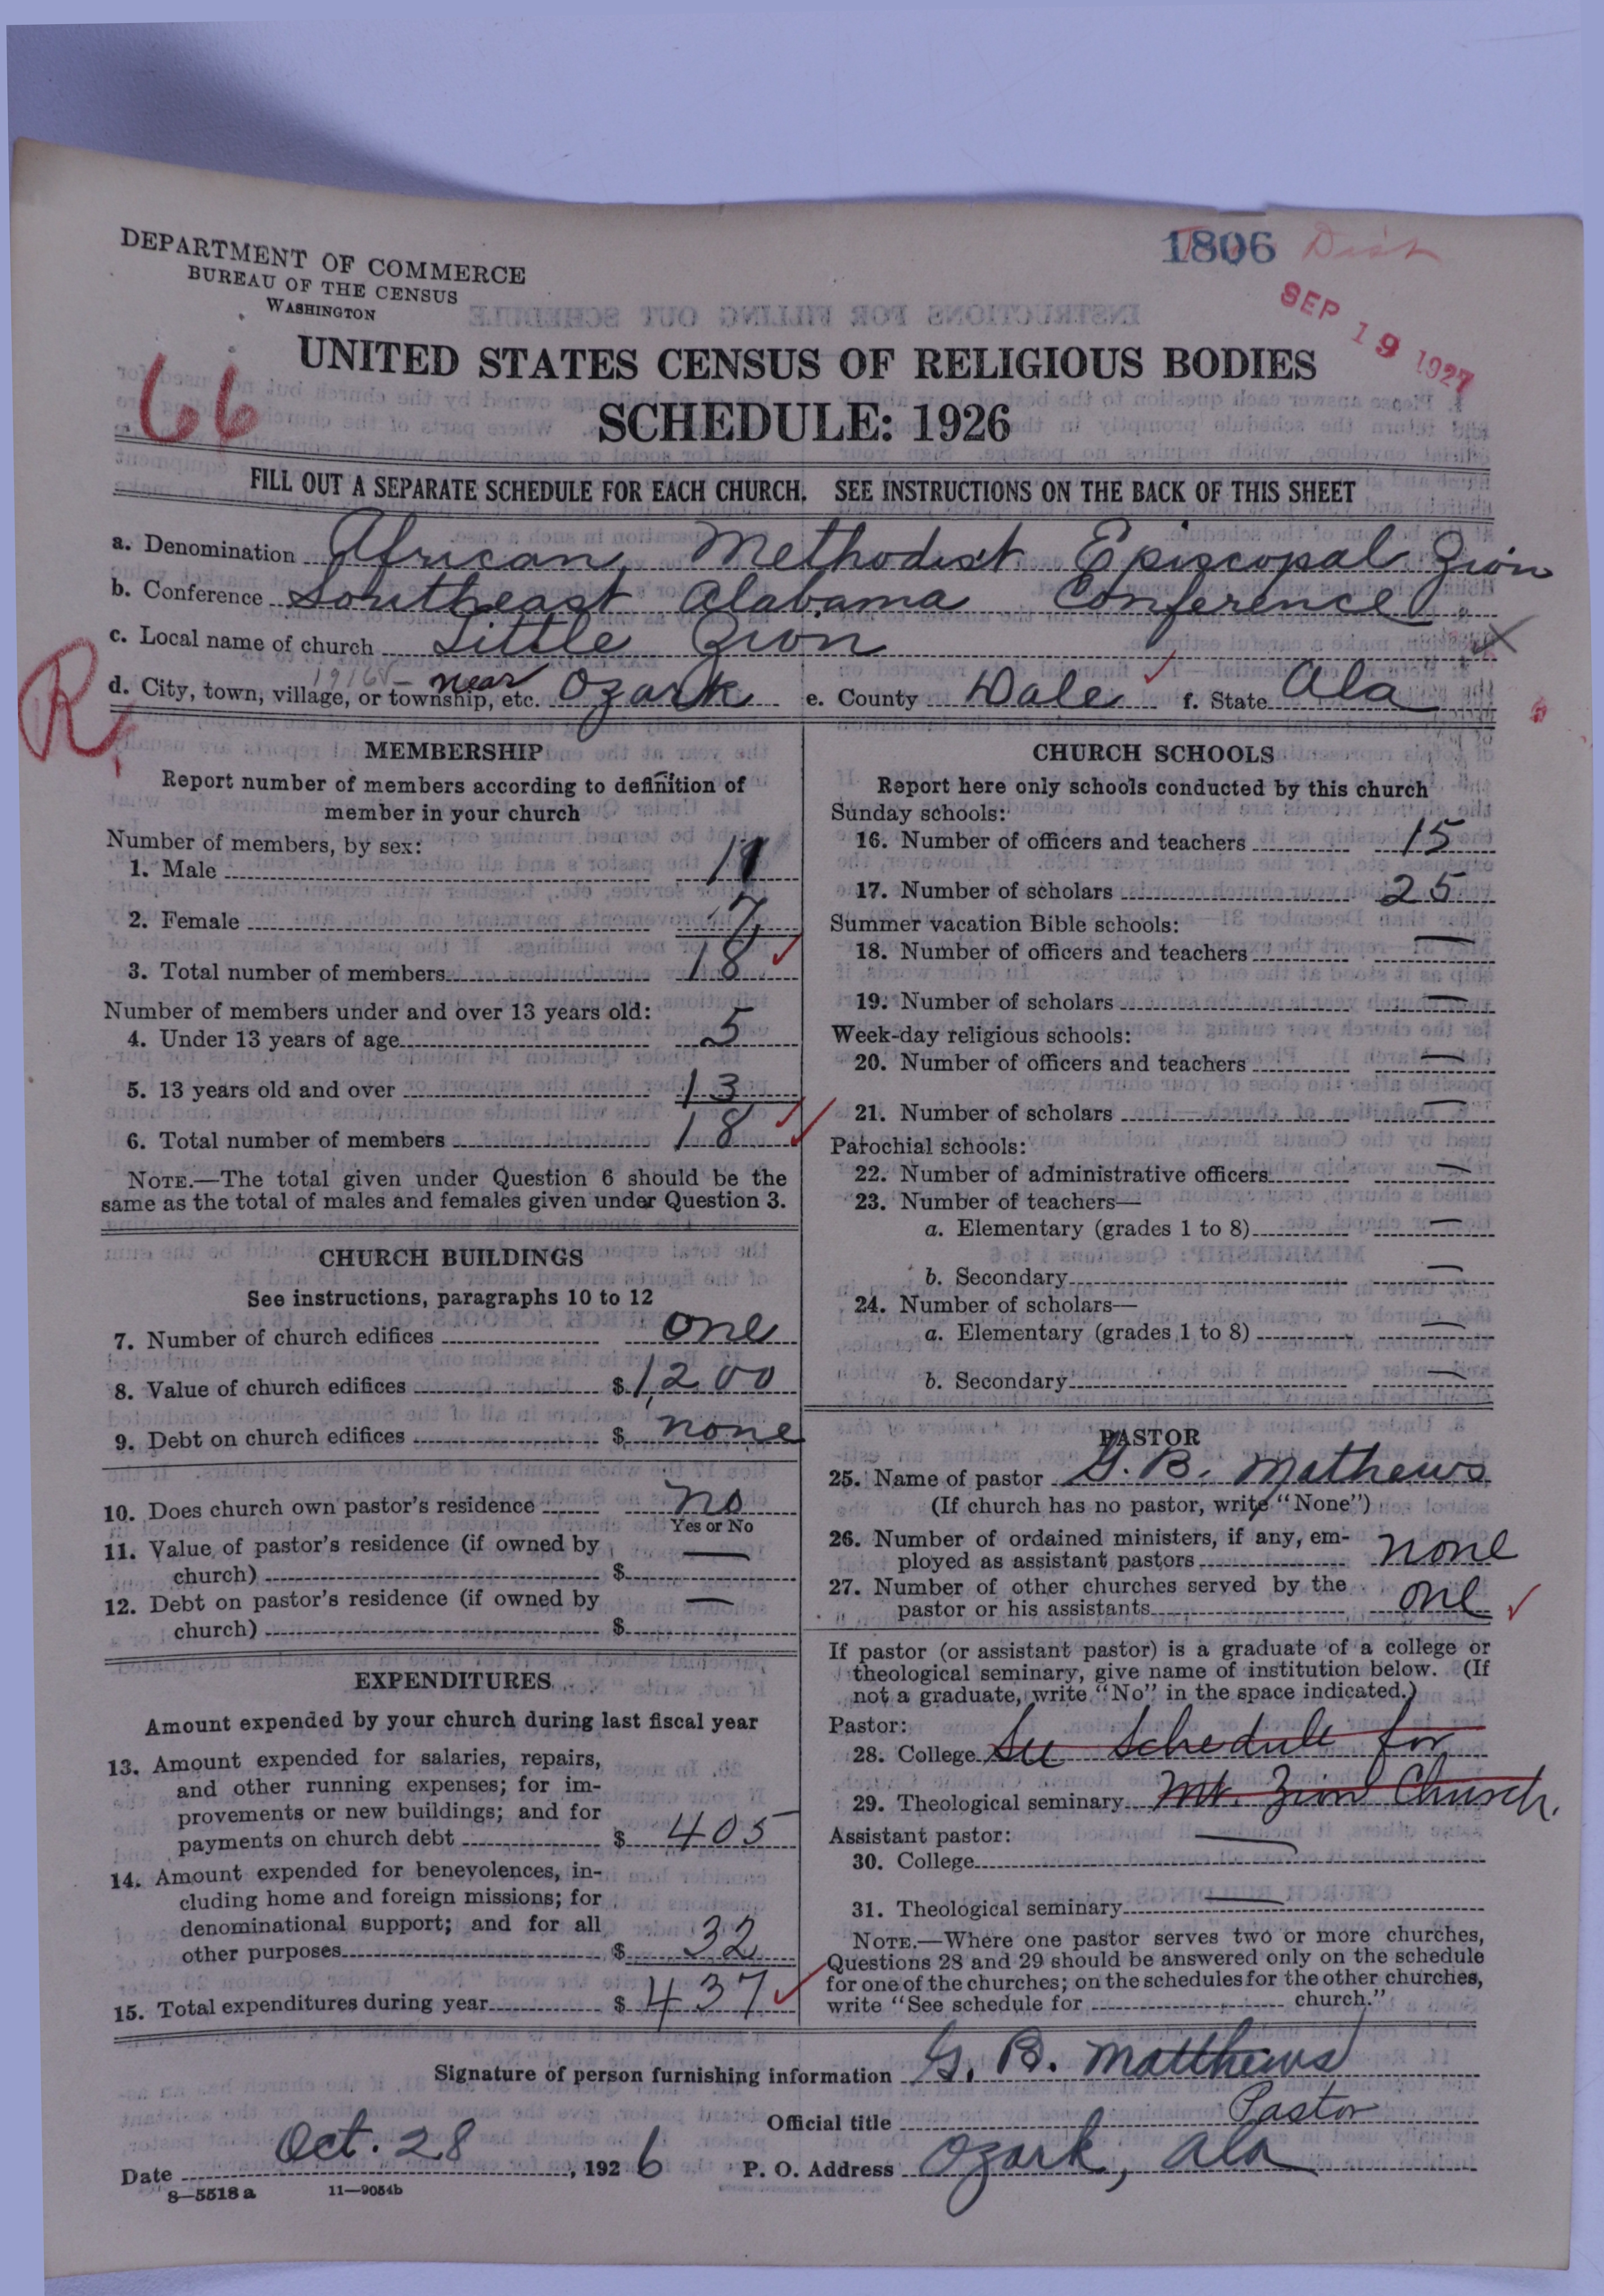 DEPARTMENT OF COMMERCE
BUREAU OF THE CENSUS
WASHINGTON
1806 Dist
SEP 19 1927
66
UNITED STATES CENSUS OF RELIGIOUS BODIES
SCHEDULE: 1926
FILL OUT A SEPARATE SCHEDULE FOR EACH CHURCH. SEE INSTRUCTIONS ON THE BACK OF THIS SHEET
a. Denomination African Methodist Episcopal Zion
b. Conference Southeast Alabama Conference
c. Local name of church Little Zion
R
d. City, town, village, or township, etc. near Ozark e. County Dale f. State Ala
MEMBERSHIP
Report number of members according to definition of
member in your church
Number of members, by sex:
1. Male 11
2. Female 7
3. Total number of members 18
Number of members under and over 13 years old:
4. Under 13 years of age 5
5. 13 years old and over 13
6. Total number of members 18
NOTE.—The total given under Question 6 should be the
same as the total of males and females given under Question 3.
CHURCH BUILDINGS
See instructions, paragraphs 10 to 12
7. Number of church edifices one
8. Value of church edifices $ 1,200
9. Debt on church edifices $ none
10. Does church own pastor's residence no
Yes or No
11. Value of pastor's residence (if owned by
church) $ —
12. Debt on pastor's residence (if owned by
church) $ —
EXPENDITURES
Amount expended by your church during last fiscal year
13. Amount expended for salaries, repairs,
and other running expenses; for im-
provements or new buildings; and for
payments on church debt $ 405
14. Amount expended for benevolences, in-
cluding home and foreign missions; for
denominational support; and for all
other purposes $ 32
15. Total expenditures during year $ 437
CHURCH SCHOOLS
Report here only schools conducted by this church
Sunday schools:
16. Number of officers and teachers 15
17. Number of scholars 25
Summer vacation Bible schools:
18. Number of officers and teachers —
19. Number of scholars —
Week-day religious schools:
20. Number of officers and teachers —
21. Number of scholars —
Parochial schools:
22. Number of administrative officers —
23. Number of teachers—
a. Elementary (grades 1 to 8) —
b. Secondary —
24. Number of scholars—
a. Elementary (grades 1 to 8) —
b. Secondary —
PASTOR
25. Name of pastor G. B. Mathews
(If church has no pastor, write "None")
26. Number of ordained ministers, if any, em-
ployed as assistant pastors none
27. Number of other churches served by the
pastor or his assistants one
If pastor (or assistant pastor) is a graduate of a college or
theological seminary, give name of institution below. (If
not a graduate, write "No" in the space indicated.)
Pastor:
28. College See Schedule for
29. Theological seminary Mt. Zion Church.
Assistant pastor:
30. College —
31. Theological seminary —
NOTE.—Where one pastor serves two or more churches,
Questions 28 and 29 should be answered only on the schedule
for one of the churches; on the schedules for the other churches,
write "See schedule for church."
Signature of person furnishing information G. B. Matthews
Official title Pastor
Date Oct. 28, 1926 P. O. Address Ozark, Ala
8—5518 a 11—9054b